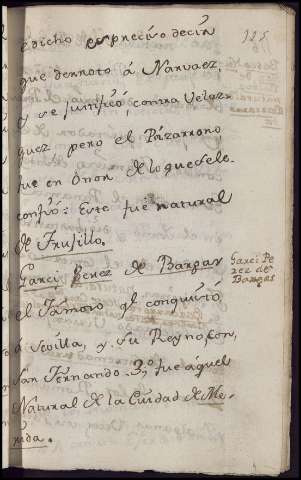 125
é dicho es preciso decir
que derroto á Narvaez,
y se justificó, contra Velaz-
quez pero el Pizarro no
fue en onor de lo que se le
confió: Este fue natural
de Trujillo.
Garci Perez de Bargas
el famoso q.e conquistó
á Sevilla, y su Reyno con,
San Fernando 3.o fue áquel
Natural de la Ciudad de Me-
rida.
Garci Pe
rez de
Bargas